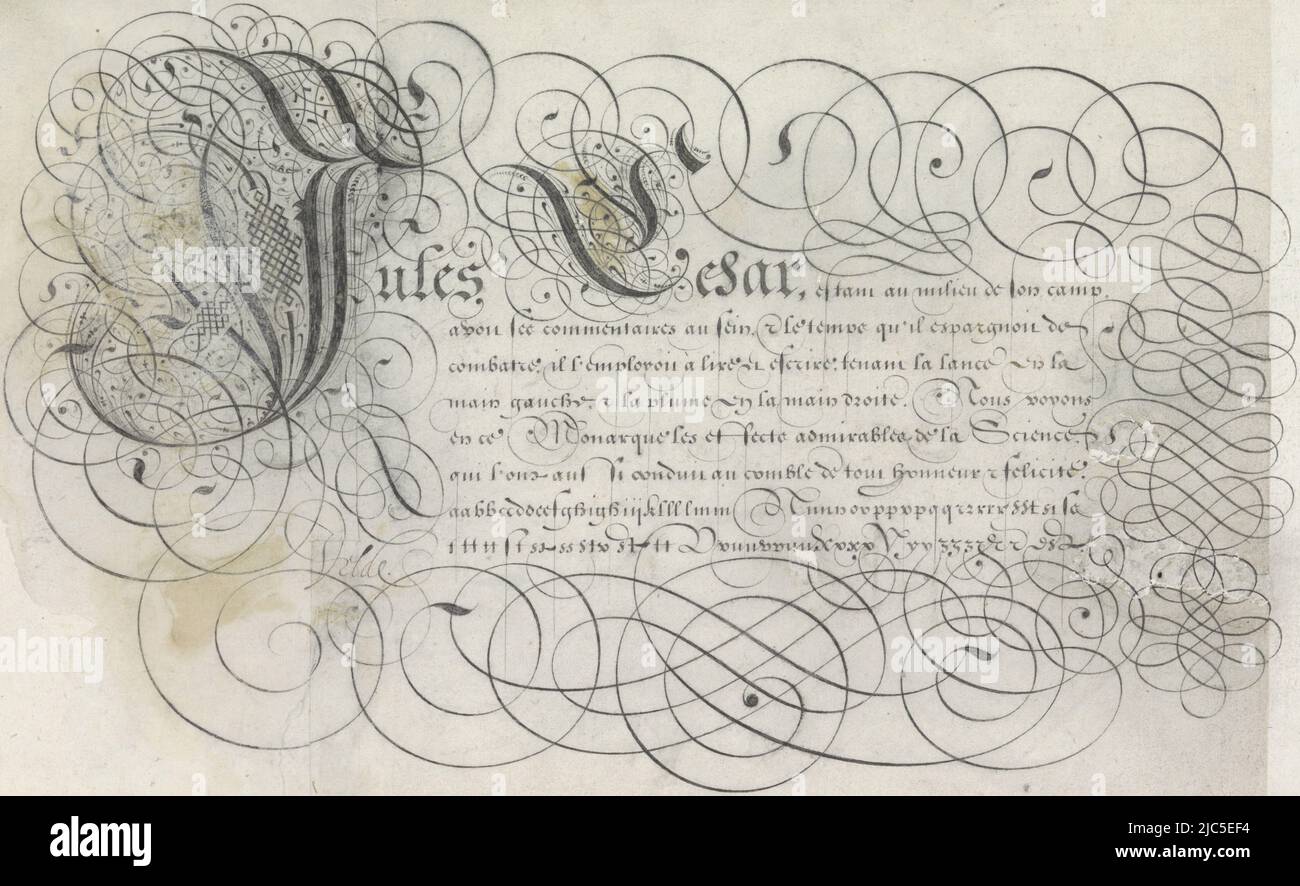 Jules Cesar, estant au milieu de son camp,
avoit ses commentaires au sein, & le temps qu'il espargnoit de
combatre, il l'employoit a lire et escrire, tenant la lance en la
main gauche, & la plume en la main droite. Nous voyons
en ce Monarque les effects admirables de la Science,
qui l'ont ainsi conduit au comble de tout honneur & felicité.
Velde.
alamy
Image ID: 2JC5EF4
www.alamy.com